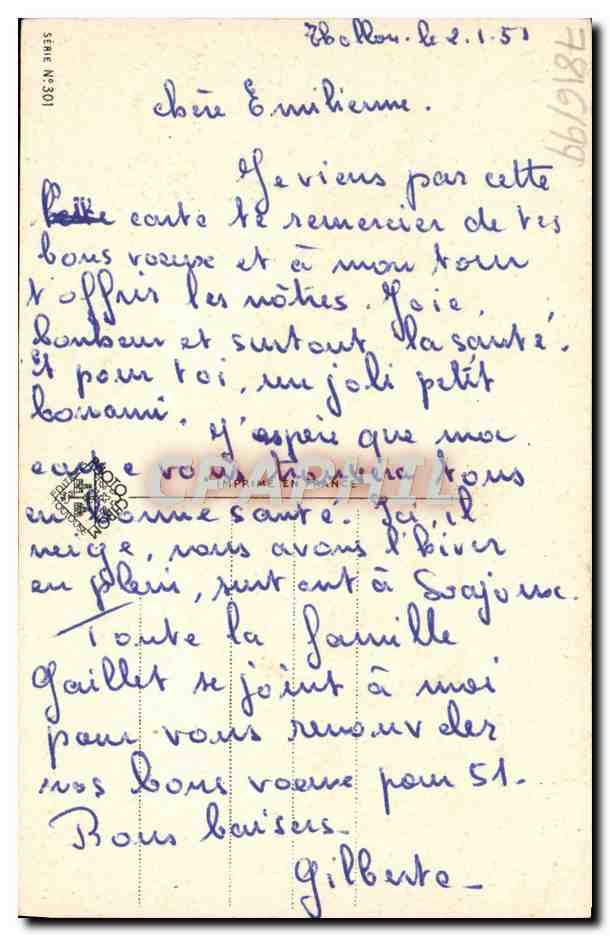 SÉRIE N° 301
le 2.1.51
7816/99
chère Emilienne.
Je viens par cette
carte te remercier de tes
bons voeux et à mon tour
t'offrir les nôtres. Joie,
bonheur et surtout, la santé.
Et pour toi, un joli petit
bonami. J'espère que ma
carte vous trouvera tous
CPAPHIL
IMPRIMÉ EN FRANCE
en bonne santé. Ici, il
neige, nous avons l'hiver
en plein, surtout à
Toute la famille
Gaillet se joint à moi
pour vous renouveler
nos bons voeux pour 51.
Bons baisers.
Gilberte